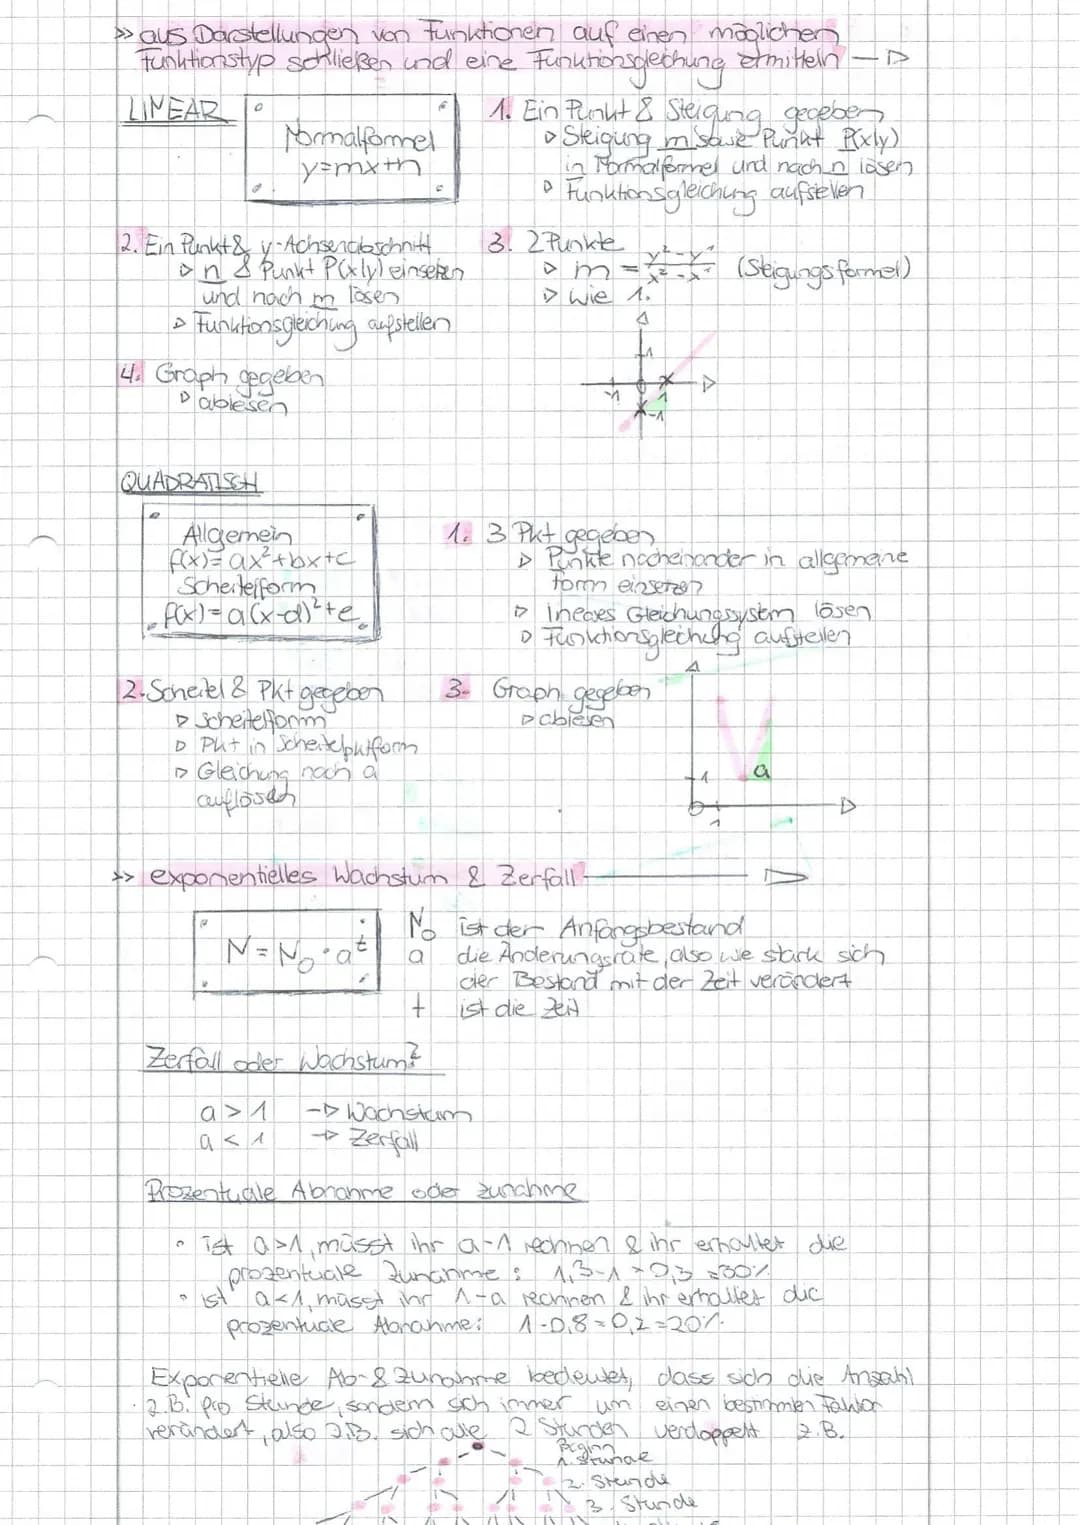 >> aus Darstellungen von Funktionen auf einen möglichen
Funktionstyp schließen und eine Funktionsgleichung ermitteln
LINEAR
Normalformel
y=mx+n
1. Ein Punkt & Steigung gegeben
▷ Steigung m sowie Punkt P(x|y)
in Normalformel und nach n lösen
▷ Funktionsgleichung aufstellen
2. Ein Punkt & y-Achsenabschnitt
▷ n & Punkt P(x|y) einsetzen
und nach m lösen
▷ Funktionsgleichung aufstellen
3. 2 Punkte
▷ m = y²-y¹ / x²-x¹ (Steigungsformel)
▷ wie 1.
4. Graph gegeben
▷ ablesen
1
-1 1
-1
QUADRATISCH
Allgemein
f(x)=ax²+bx+c
Scheitelform
f(x)=a(x-d)²+e
1. 3 Pkt gegeben
▷ Punkte nacheinander in allgemeine
Form einsetzen
▷ lineares Gleichungssystem lösen
▷ Funktionsgleichung aufstellen
2. Scheitel & Pkt gegeben
▷ Scheitelform
▷ Pkt in Scheitelpktform
▷ Gleichung nach a
auflösen
3. Graph gegeben
▷ ablesen
a
1
1
>> exponentielles Wachstum & Zerfall
N=N₀·aᵗ
N₀ ist der Anfangsbestand
a die Änderungsrate, also wie stark sich
der Bestand mit der Zeit verändert
t ist die Zeit
Zerfall oder Wachstum?
a > 1 -▷ Wachstum
a < 1 -▷ Zerfall
Prozentuale Abnahme oder Zunahme
• ist a>1, müsst ihr a-1 rechnen & ihr erhaltet die
prozentuale Zunahme: 1,3-1=0,3=30%
• ist a<1, müsst ihr 1-a rechnen & ihr erhaltet die
prozentuale Abnahme: 1-0,8=0,2=20%
Exponentielle Ab- & Zunahme bedeutet, dass sich die Anzahl
z.B. pro Stunde, sondern sich immer um einen bestimmten Faktor
verändert, also z.B. sich alle 2 Stunden verdoppelt z.B.
Beginn
1. Stunde
2. Stunde
3. Stunde